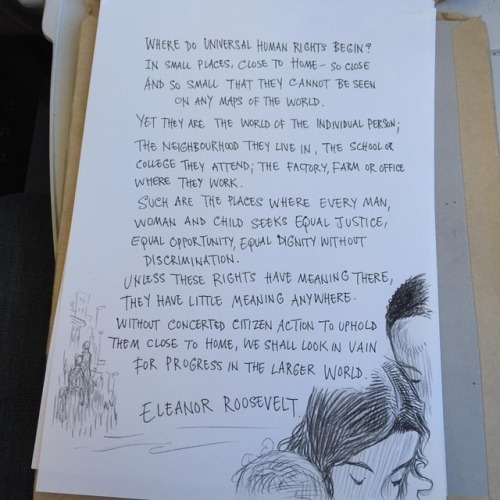 WHERE DO UNIVERSAL HUMAN RIGHTS BEGIN?
IN SMALL PLACES, CLOSE TO HOME – SO CLOSE
AND SO SMALL THAT THEY CANNOT BE SEEN
ON ANY MAPS OF THE WORLD.
YET THEY ARE THE WORLD OF THE INDIVIDUAL PERSON;
THE NEIGHBOURHOOD THEY LIVE IN, THE SCHOOL OR
COLLEGE THEY ATTEND; THE FACTORY, FARM OR OFFICE
WHERE THEY WORK.
SUCH ARE THE PLACES WHERE EVERY MAN,
WOMAN AND CHILD SEEKS EQUAL JUSTICE,
EQUAL OPPORTUNITY, EQUAL DIGNITY WITHOUT
DISCRIMINATION.
UNLESS THESE RIGHTS HAVE MEANING THERE,
THEY HAVE LITTLE MEANING ANYWHERE.
WITHOUT CONCERTED CITIZEN ACTION TO UPHOLD
THEM CLOSE TO HOME, WE SHALL LOOK IN VAIN
FOR PROGRESS IN THE LARGER WORLD.
ELEANOR ROOSEVELT.